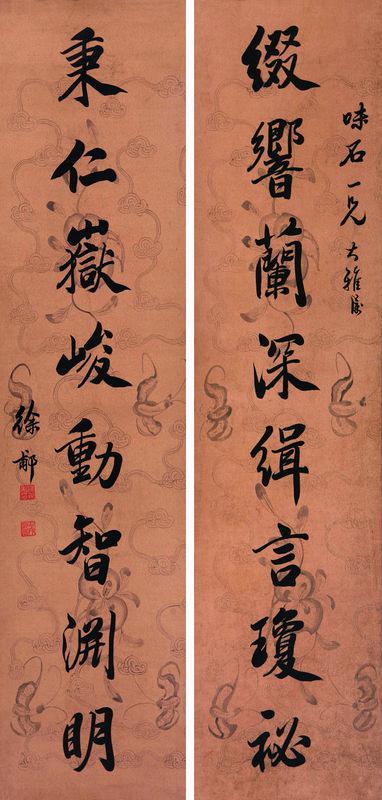 味石一兄大雅屬
綴響蘭深緝言瓊祕
秉仁嶽峻動智淵明
徐郙